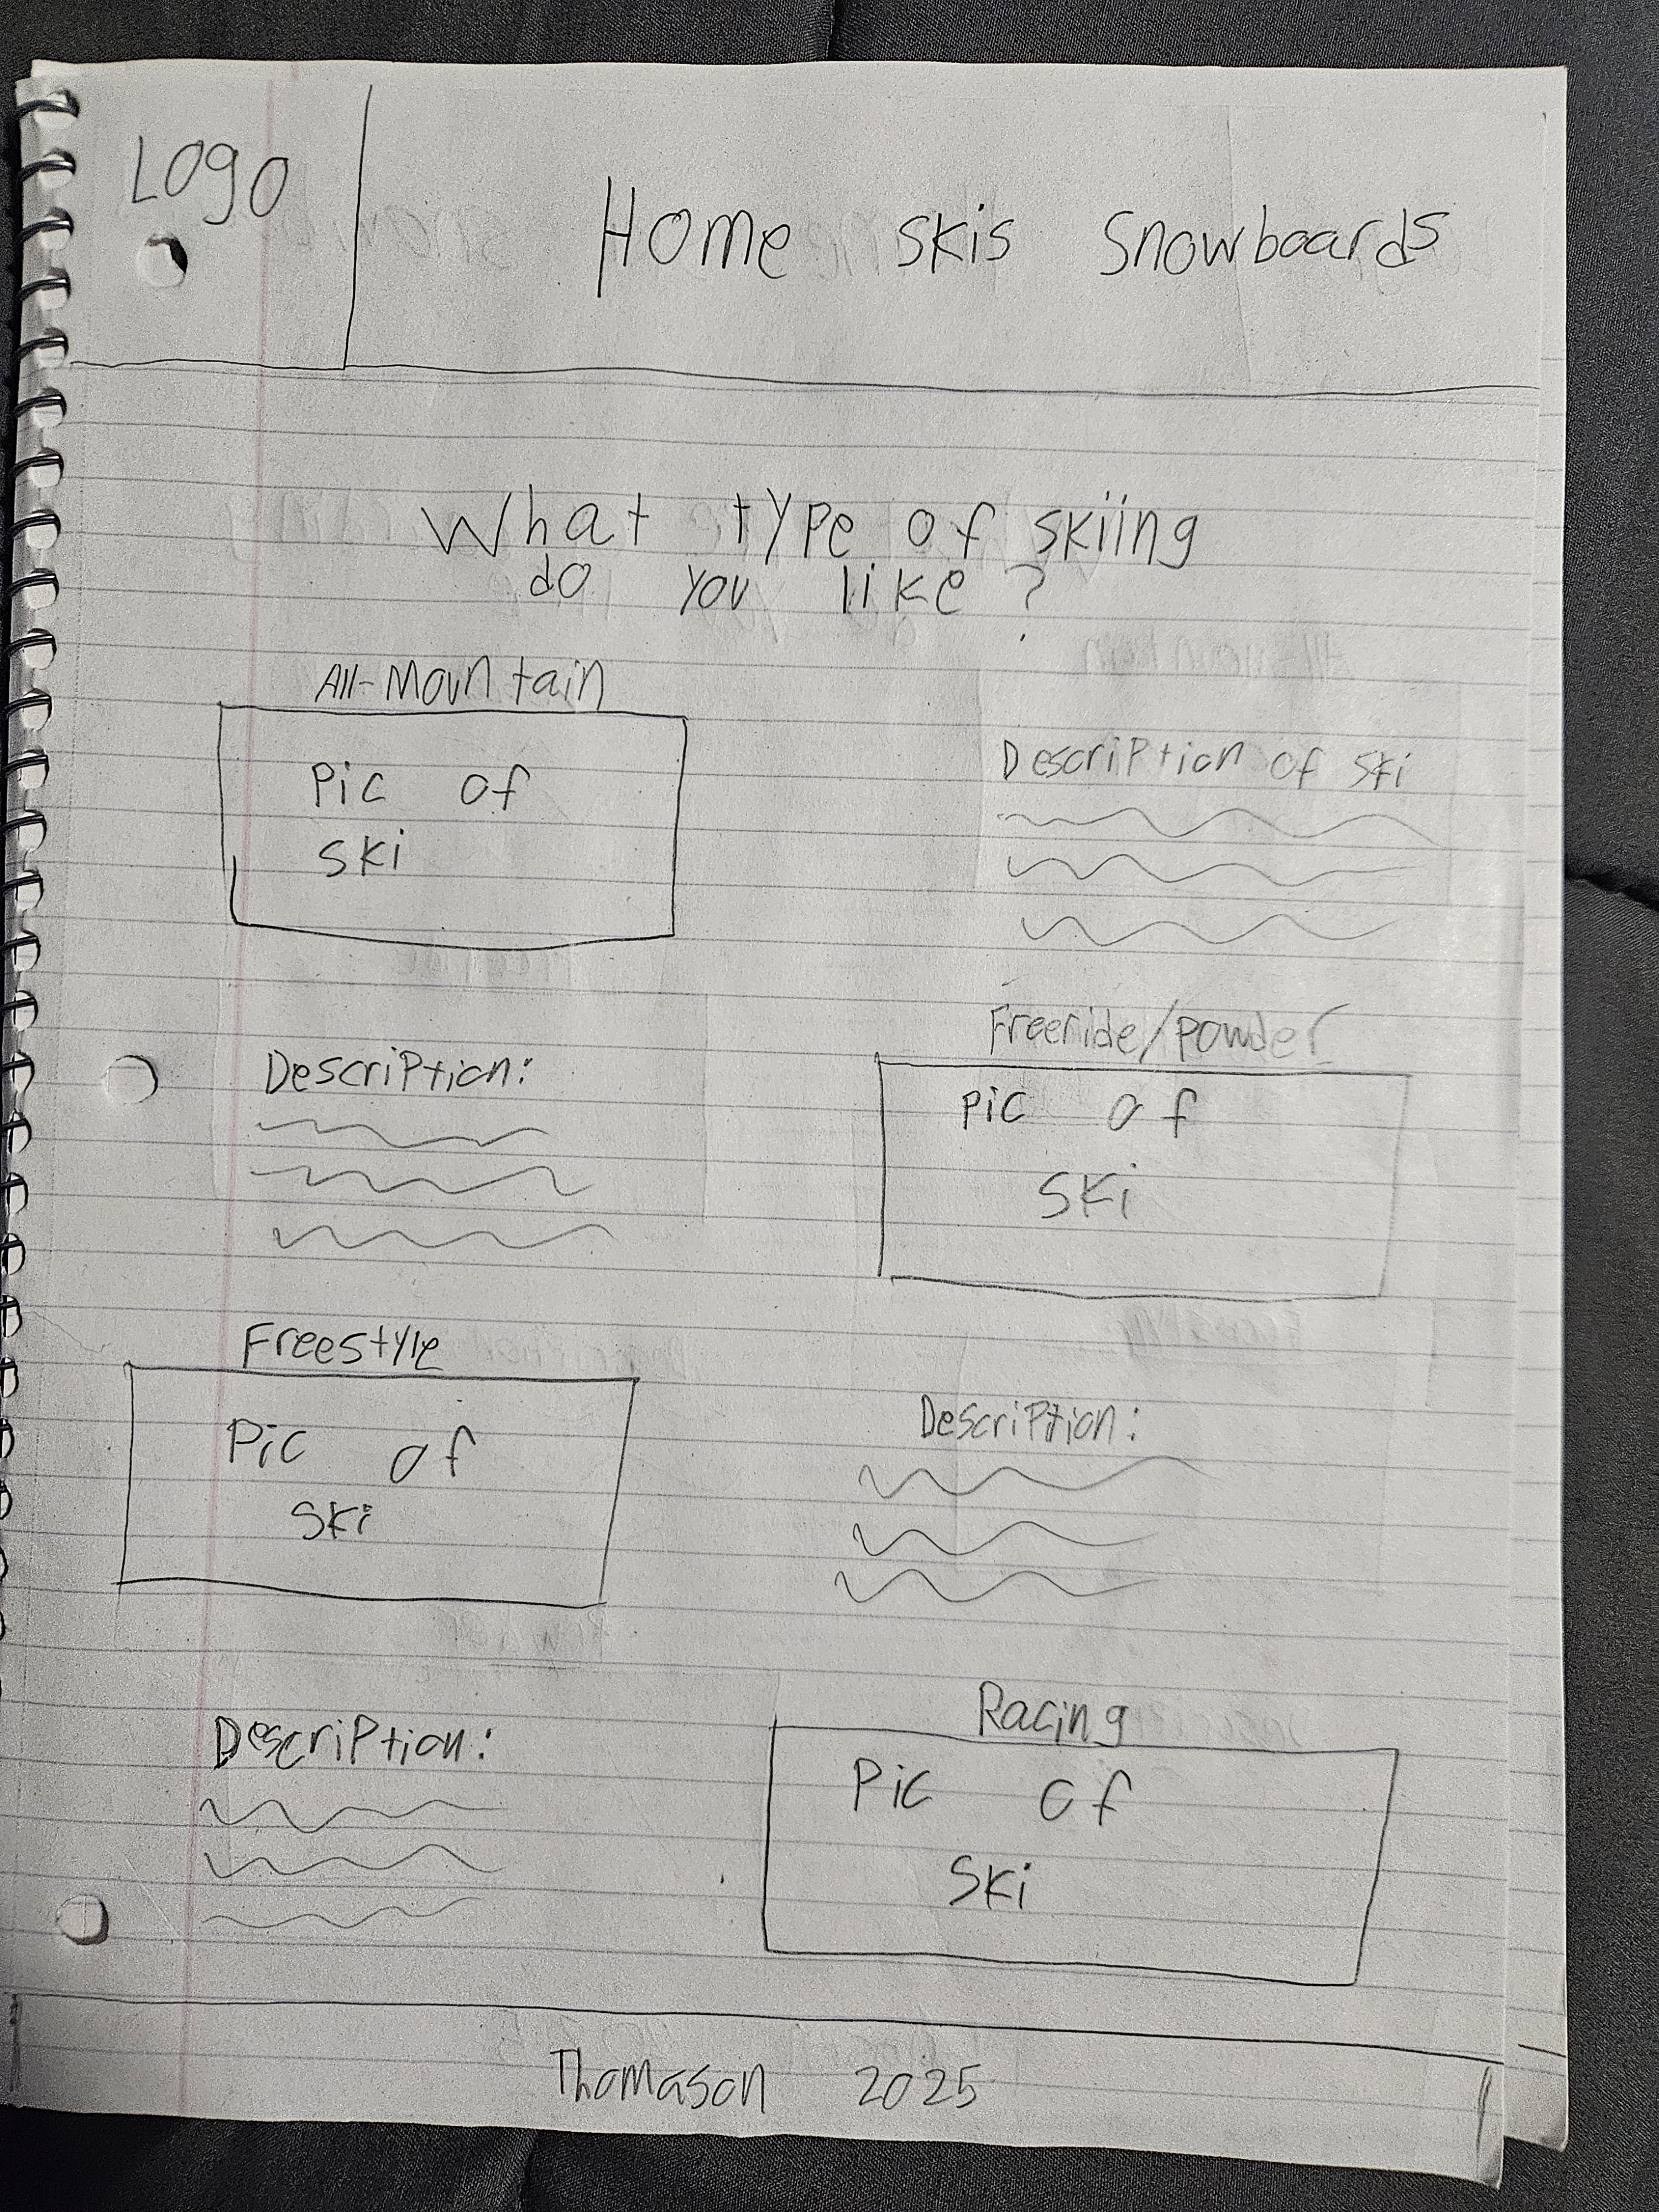 Logo
Home skis Snowboards
What type of skiing
do you like?
All-Mountain
Pic of
ski
Description of ski
Freeride/powder
Description:
Pic of
Ski
Freestyle
Pic of
Ski
Description:
Racing
Description:
Pic of
Ski
Thomason 2025